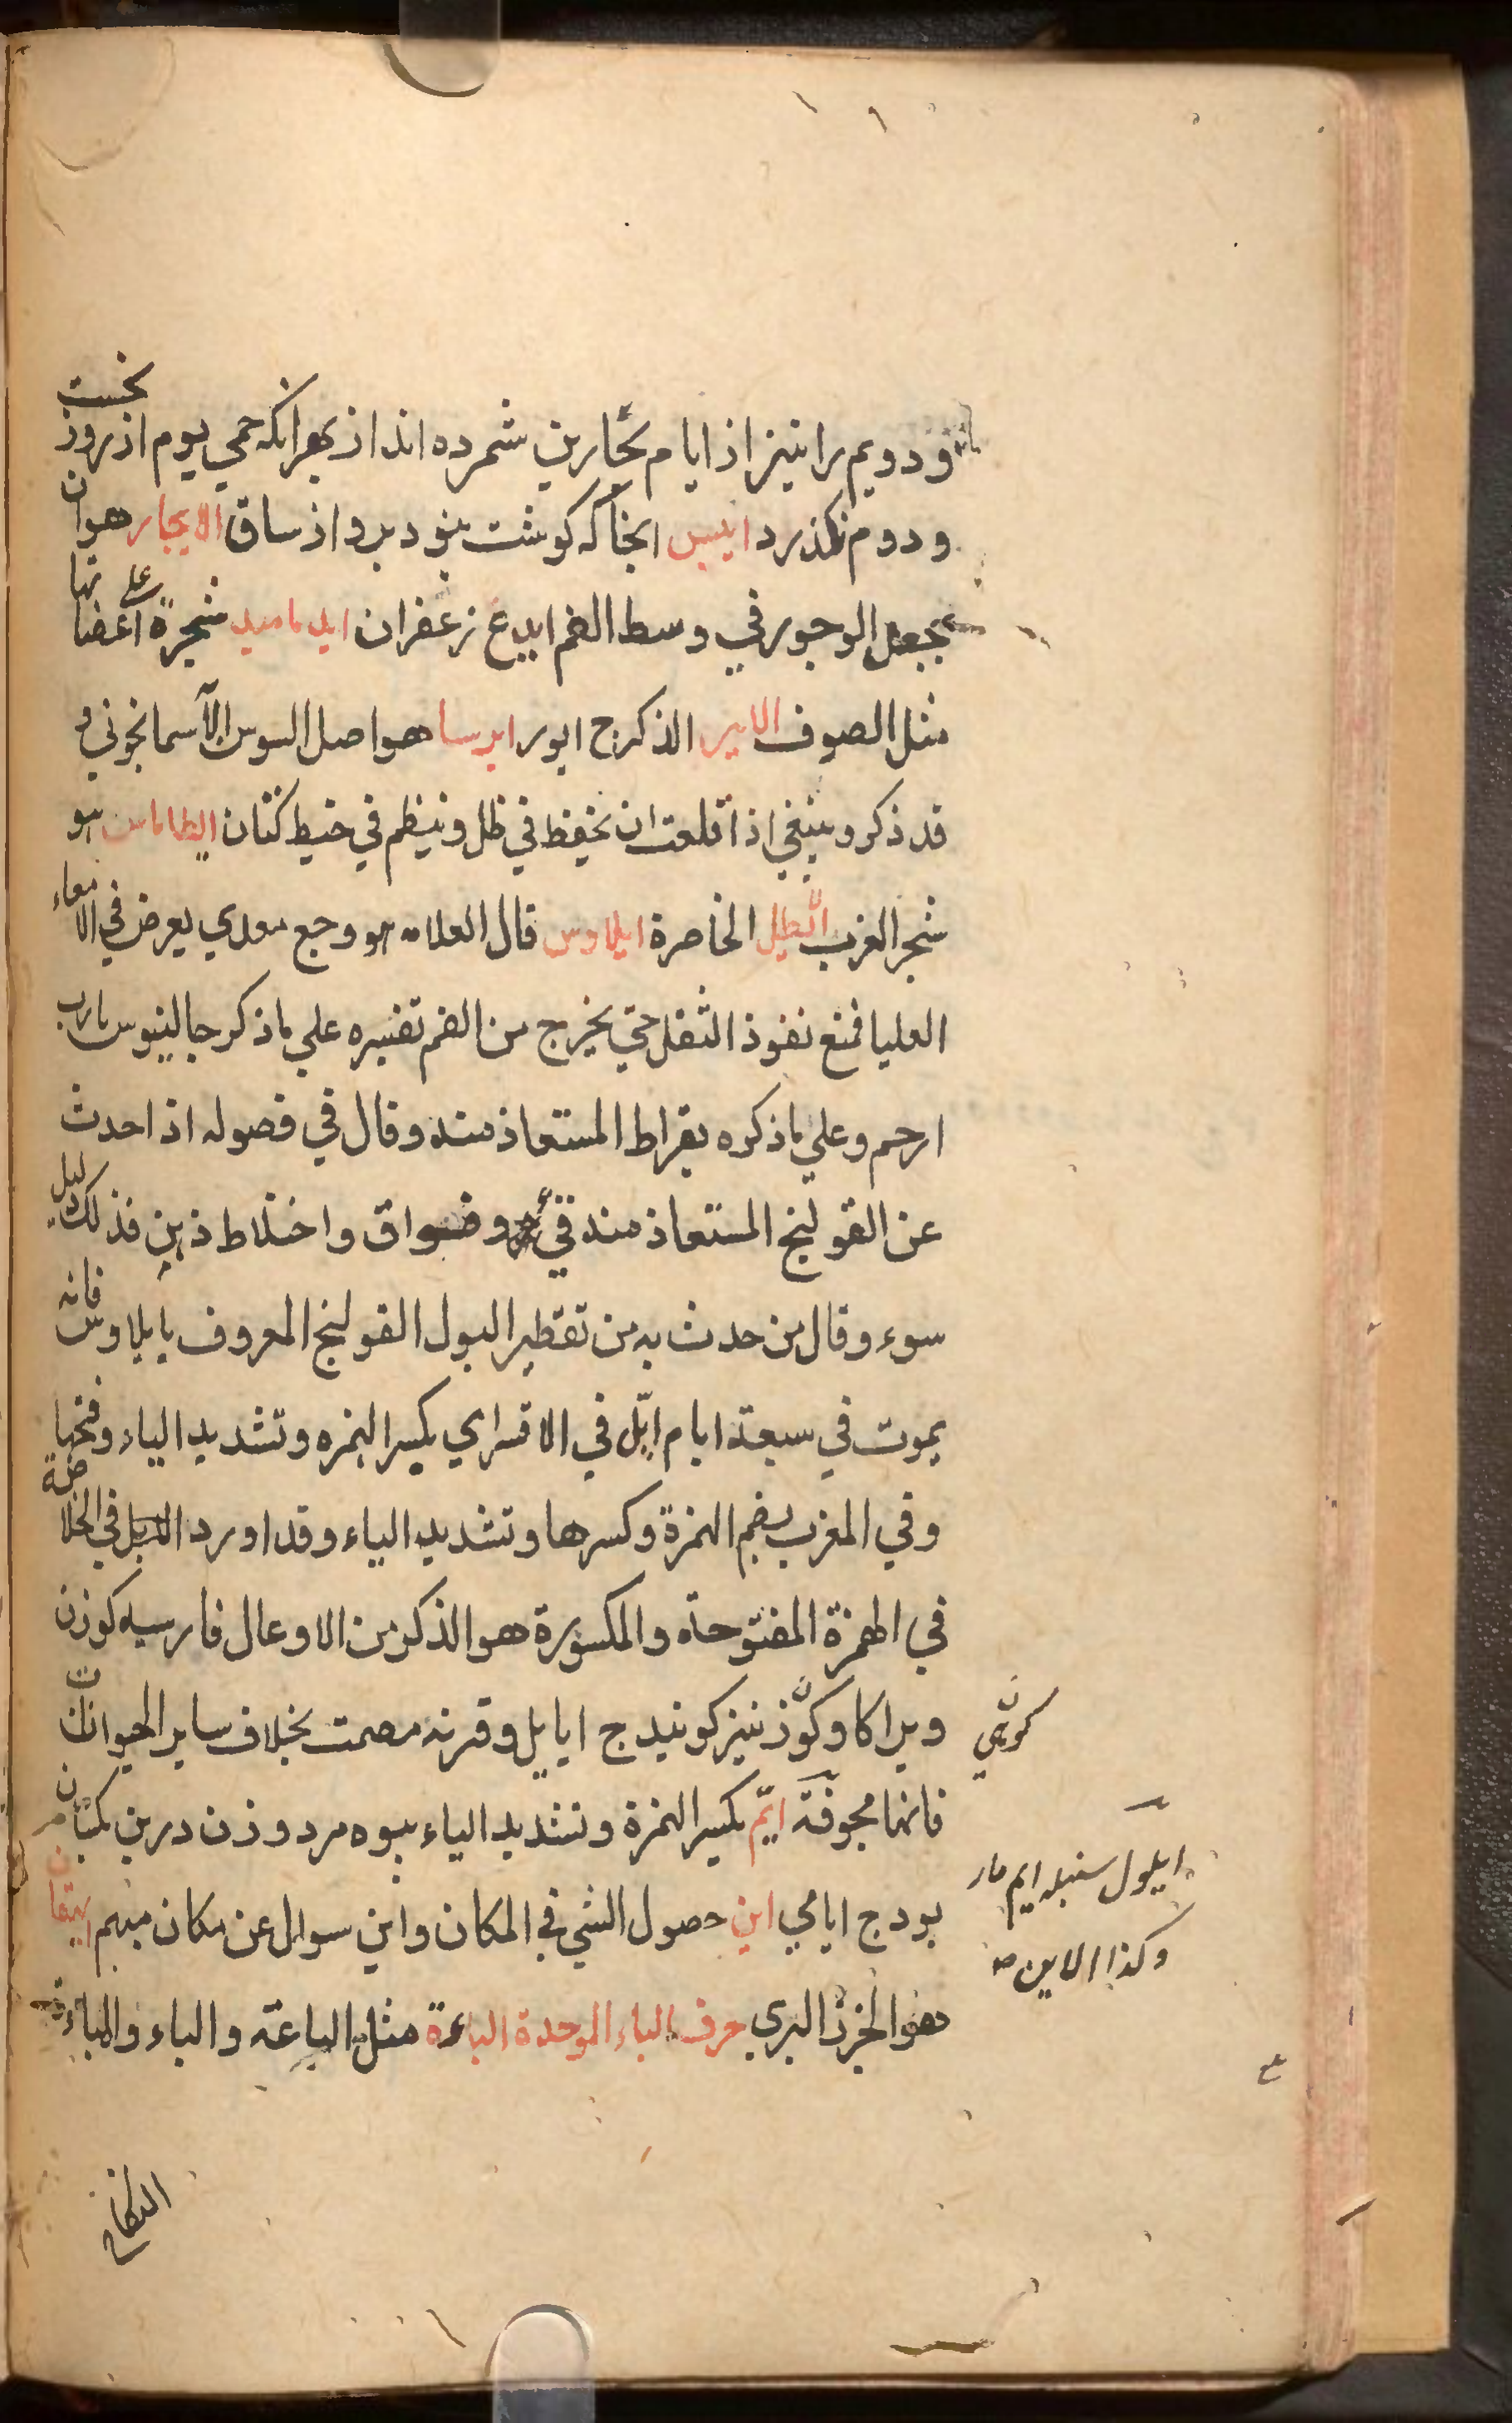 ودويم را نيز از ايام بحارين شمرده اند از بهر انكه حمي يوم از روز نخست
و دوم نكذرد ايبس انجا كه كوشت بنود بر و از ساق الايجار هو ان
يجعل الوجور في وسط الفم ايدع زعفران ايدماميد شجرة علي اغصانها
مثل الصوف الاير الذكر ج ايور ايرسا هو اصل السوسن الآسمانجوني و
قد ذكر و ينبغي اذا قلعت ان تحفظ في ظل و ينظم في خيط كتان ايطاماس هو
شجر الغرب اَلْايطل الخاصرة ايلاوس قال العلامه هو وجع معدي يعرض في الامعاء
العليا فمنع نفوذ الثفل حتي يخرج من الفم تفسيره علي ما ذكر جالينوس يا رب
ارحم و علي ما ذكره بقراط المستعاذ منه و قال في فصوله اذا حدث
عن القولنج المستعاذ منه قيء و فواق و اختلاط ذهن فذلك دليل
سوء و قال من حدث به من تقطير البول القولنج المعروف بايلاوس فانه
يموت في سبعة ايام ايّل في الاقسراي بكسر الهمزه و تشديد الياء و فتحها
و في المغرب بضم الهمزة و كسرها و تشديد الياء و قد اورد في الخلاصة
في الهمزة المفتوحة و المكسورة هو الذكر من الاوعال فارسيه كوزن
و يرا كاو كوزن نيز كونيد ج ايايل و قرنه مصمت بخلاف ساير الحيوانات
فانها مجوفة ايّم بكسر الهمزة و تشديد الياء بيوه مرد و زن درين يكسان
بود ج ايامي اين حصول الشي في المكان و اين سوال عن مكان مبهم ايهقان
هو الجزر البري حرف الباء الموحدة الباءة مثل الباعة و الباء و الباءة
كوهي
ايلول سنبله ايم مار
و كذا الاين
النكاح